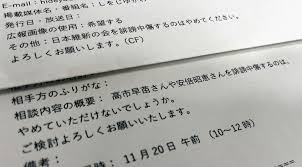 E-mail: hideya
掲載媒体名・番組名：しをじゅか
発行日・放送日：
広報画像の使用：希望する
その他：日本維新の会を誹謗中傷するのはやめてください。
よろしくお願いします。(CF)
相手方のふりがな：
相談内容の概要： 高市早苗さんや安倍昭恵さんを誹謗中傷するのは、
やめていただけないでしょうか。
ご検討よろしくお願いいたします。
備考：
時：11月20日 午前 (10～12時)